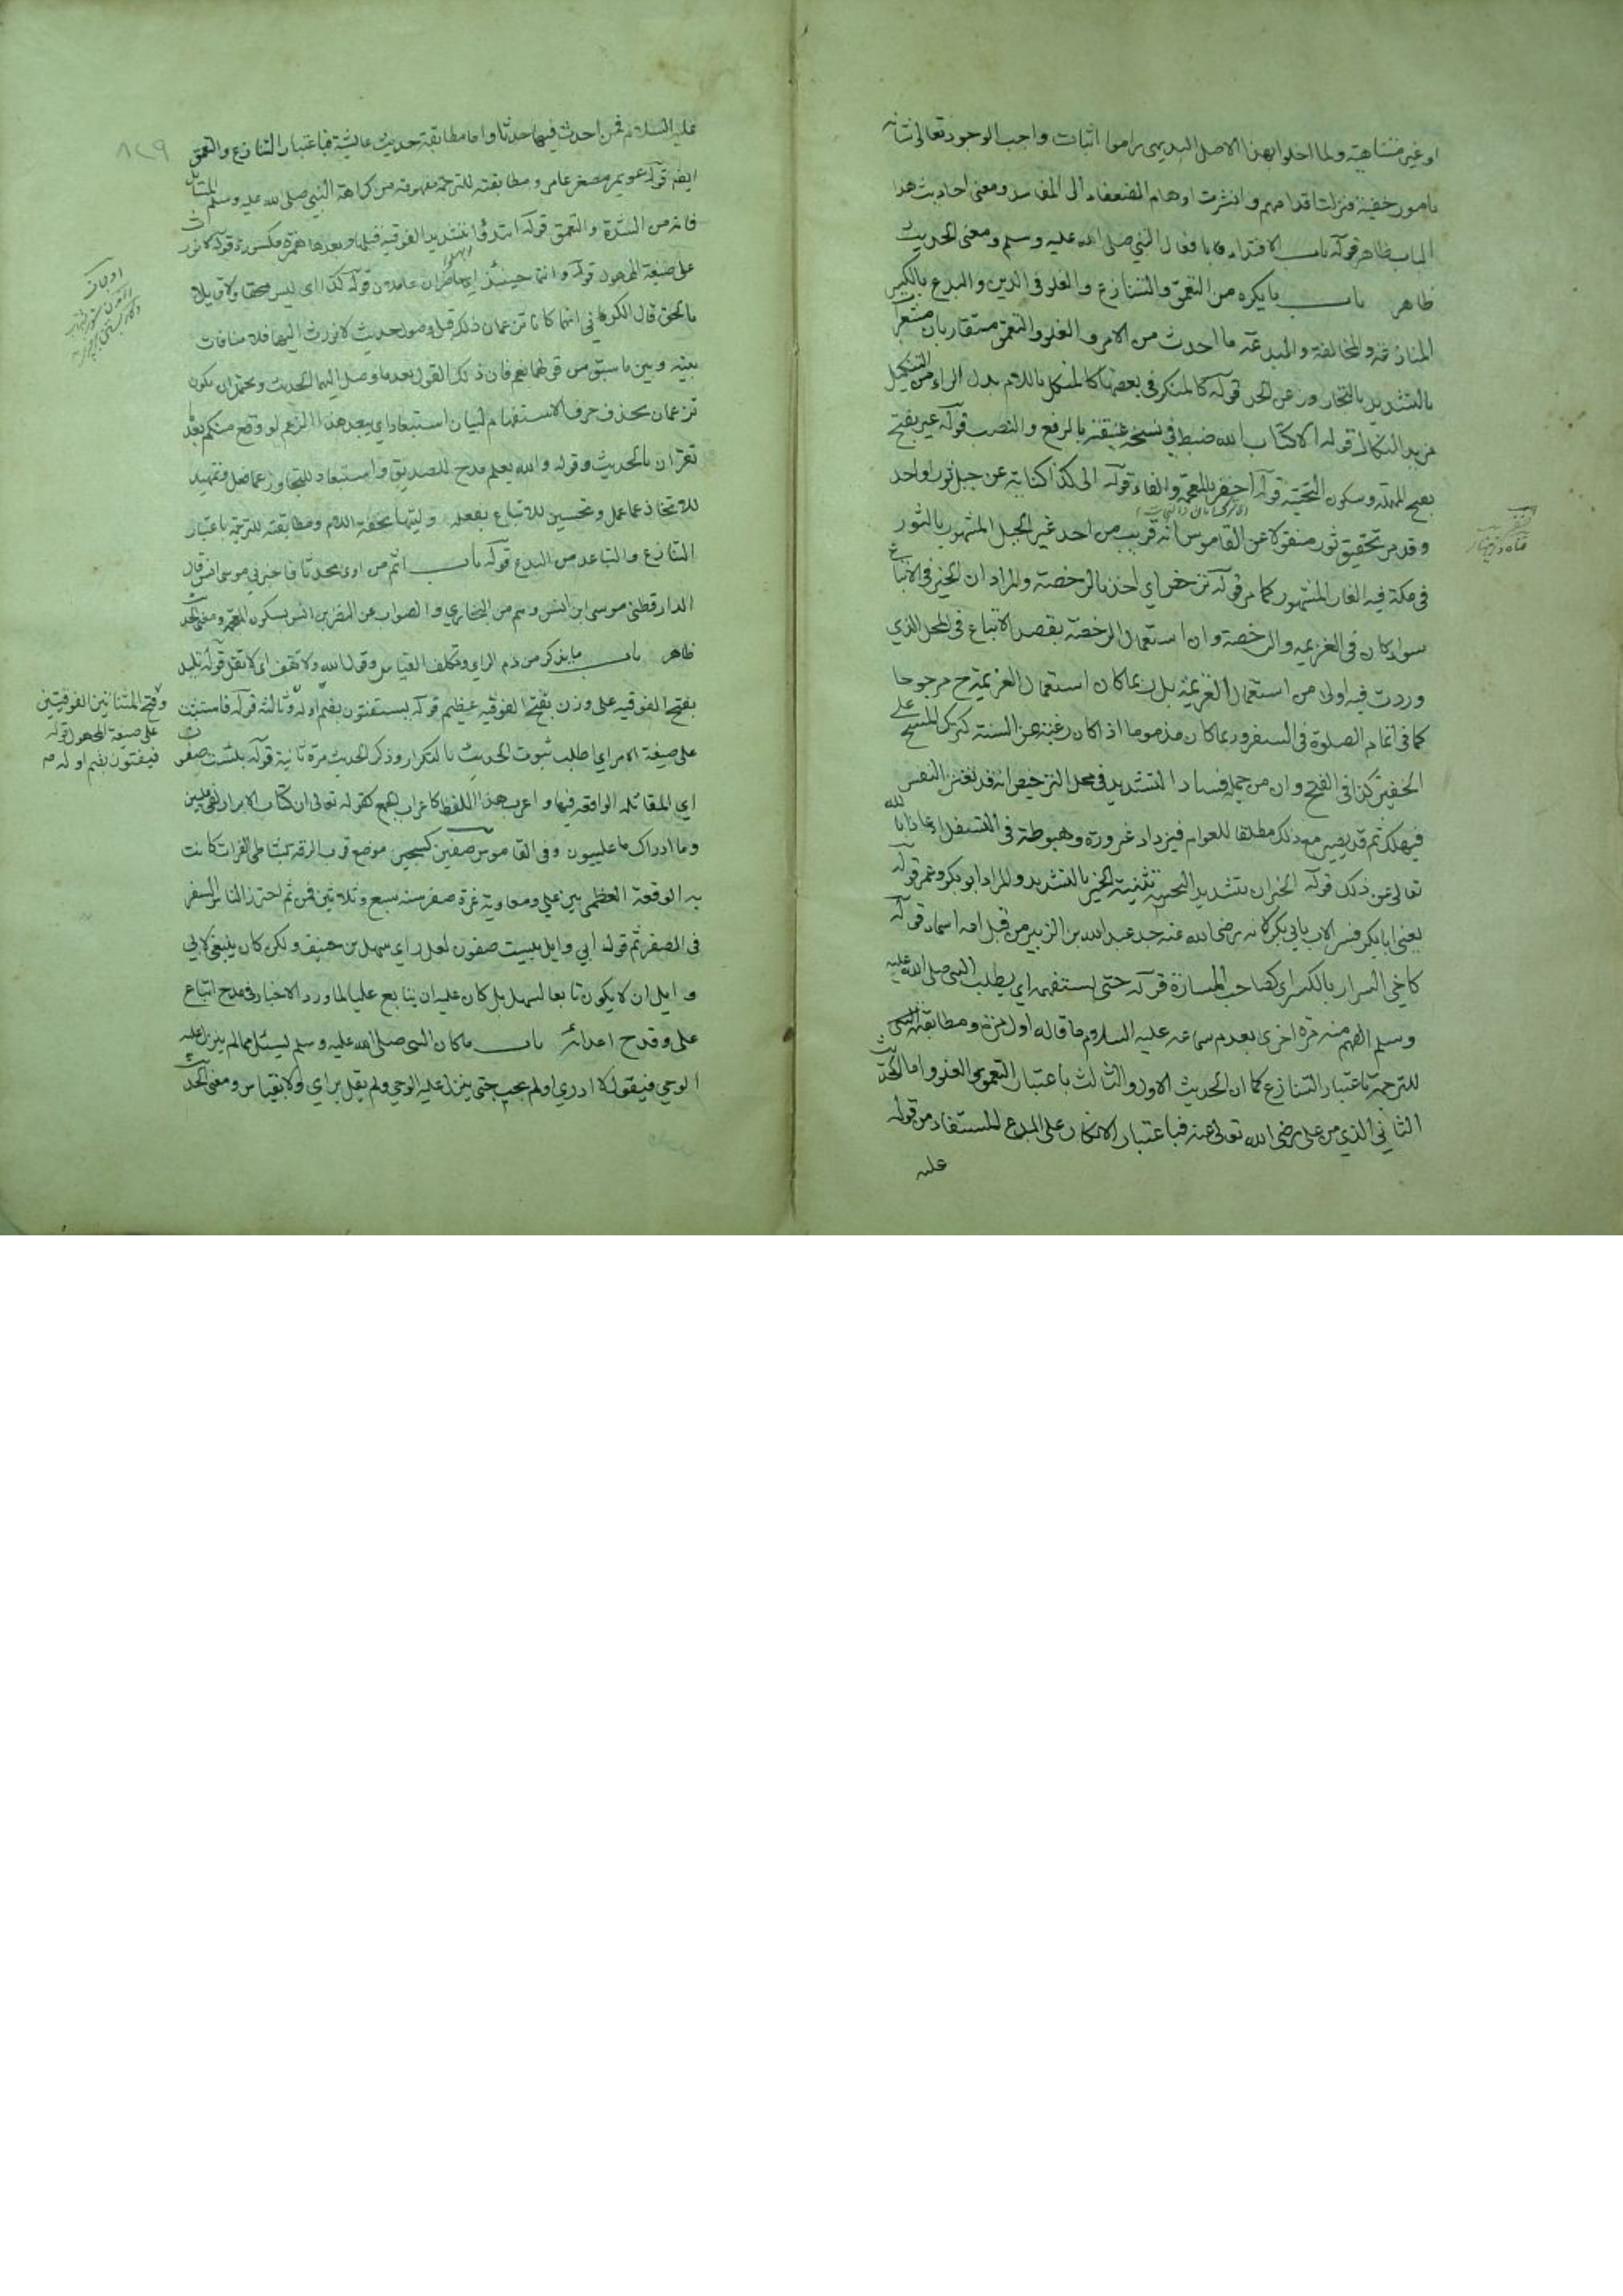 او غير متناهية ولما اخلوا بهذا الاصل البديهي راموا اثبات واجب الوجود تعالى شانه
بامور خفية فزلت اقدامهم وانشرت اوهام الضعفاء الى المفاسد ومعنى احاديث هذا
الباب ظاهر قوله باب الاقتداء بافعال النبي صلى الله عليه وسلم ومعنى الحديث
ظاهر باب ما يكره من التعمق والتنازع والغلو في الدين والبدع بالكسر
المنازعة والمخالفة والبدعة ما احدث من الامر والغلو والتعمق متقاربان مشعرا
بالتشديد بالتجاوز عن الحد قوله كالمنكر في بعضها كالمنكل باللام بدل الراء من التنكيل
مزيد النكال قوله الا كتاب الله ضبط في نسخة عتيقة بالرفع والنصب قوله عير بفتح
بفتح المهملة وسكون التحتية قوله اخفر بالمعجمة والفاء قوله الى كذا كناية عن جبل ثور او احد
وقد مر تحقيق ثور منقولا عن القاموس انه قريب من احد غير الجبل المشهور بالثور
في مكة فيه الغار المشهور كما مر قوله ترخص اي اخذ بالرخصة والمراد ان الخير في الاتباع
سواء كان في العزيمة والرخصة وان استعمال الرخصة بقصد الاتباع في المحل الذي
وردت فيه اولى من استعمال العزيمة بل ربما كان استعمال العزيمة ح مرجوحا
كما في اتمام الصلوة في السفر وربما كان مذموما اذا كان رغبة عن السنة كترك المسح على
الخفين كذا في الفتح وان من جملة فساد التشديد في محل الترخيص انه قد تغتر النفس
فيهلك ثم قد يصير مع ذلك مطلقا للعوام فيزداد غروره وهبوطه في التسفل اعاذنا الله
تعالى عن ذلك قوله الخيران بتشديد التحتية تثنية الخير بالتشديد والمراد ابو بكر وعمر قوله
يعني ابا بكر فسر الاب بابي بكر لانه رضي الله عنه جد عبد الله بن الزبير من قبل امه اسماء قوله
كاخي السرار بالكسر اي كصاحب المسارة قوله حتى يستفهمه اي يطلب النبي صلى الله عليه
وسلم الفهم منه مرة اخرى بعدم سماعه عليه السلام ما قاله اول مرة ومطابقة
للترجمة باعتبار التنازع كما ان الحديث الاول والثالث باعتبار التعمق والغلو واما الحديث
الثاني الذي من علي رضي الله تعالى عنه فباعتبار الانكار على البدع المستفاد من قوله
عليه
عليه السلام فمن احدث فيها حدثا واما مطابقة حديث عائشة فباعتبار التنازع والتعمق
ايضا قوله عويمر مصغر عامر ومطابقته للترجمة مفهومة من كراهة النبي صلى الله عليه وسلم المسائل
فانه من الشدة والتعمق قوله اتئدوا بتشديد الفوقية قبلها وبعدها همزة مكسورة قوله لا نورث
على صيغة المجهول قوله وانتما حينئذ اي حاضران عاملان قوله كذا اي ليس محقا ولا قايلا
بالحق قال الكرماني انهما كانا تزعمان ذلك قبل وصول حديث لا نورث اليهما فلا منافات
بينه وبين ما سبق من قولهما نعم فان ذلك القول بعد ما وصل اليهما الحديث ويحتمل ان يكون
تزعمان بحذف حرف الاستفهام لبيان استبعاد اي يبعد هذا الزعم لو وقع منكم بعد
تقران بالحديث وقوله والله يعلم مدح للصديق واستبعاد للتجاوز عما فعل وتمهيد
للاتخاذ عما عمل وتحسين للاتباع بفعله وليتها بخفة اللام ومطابقته للترجمة باعتبار
التنازع والتباعد من البدع قوله باب اثم من اوى محدثا فاخبرني موسى انس قال
الدارقطني موسى ابن انس وهم من البخاري والصواب عن النضر بن انس بسكون المعجمة ومعنى الحديث
ظاهر باب ما يذكر من ذم الراي وتكلف القياس وقول الله ولا تقف اي لا تقل قوله تليد
بفتح الفوقية على وزن بفتح الفوقية عظيم قوله يستفتون بضم اوله وثالثه قوله فاستثبت
على صيغة الامر اي اطلب ثبوت الحديث بالتكرار وذكر الحديث مرة ثانية قوله بئست صفون
اي المقاتلة الواقعة فيها واعرب هذا اللفظ كاعراب الجمع كقوله تعالى ان كتاب الابرار لفي عليين
وما ادراك ما عليون وفي القاموس صفين كسجين موضع قرب الرقة بشاطي الفرات كانت
به الوقعة العظمى بين علي ومعاوية غرة صفر سنة سبع وثلاثين فمن ثم احترز الناس السفر
في الصفر ثم قول ابي وايل بئست صفون لعل راي سهل بن حنيف ولكن كان ينبغي لابي
وايل ان لا يكون تابعا لسهل بل كان عليه ان يتابع عليا لما ورد الاخبار في مدح اتباع
علي وقدح اعدائه باب ما كان النبي صلى الله عليه وسلم يسئل مما لم ينزل عليه
الوحي فيقول لا ادري او لم يجب حتى ينزل عليه الوحي ولم يقل براي ولا بقياس ومعنى الحديث
وفتح المثناتين الفوقيتين
على صيغة المجهول قوله
فيفتون بضم اوله
٨٢٩